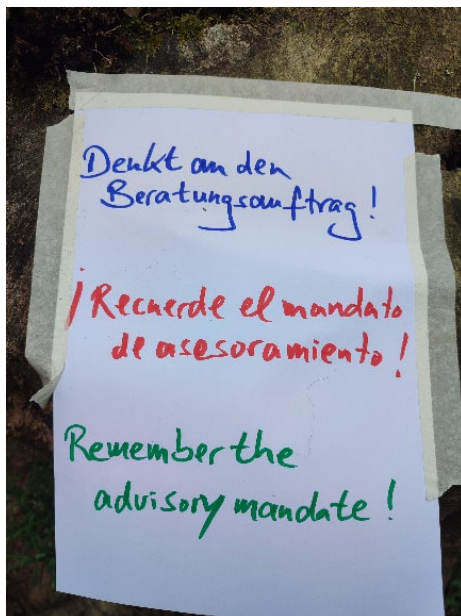 Denkt an den
Beratungsauftrag!
¡Recuerde el mandato
de asesoramiento!
Remember the
advisory mandate!